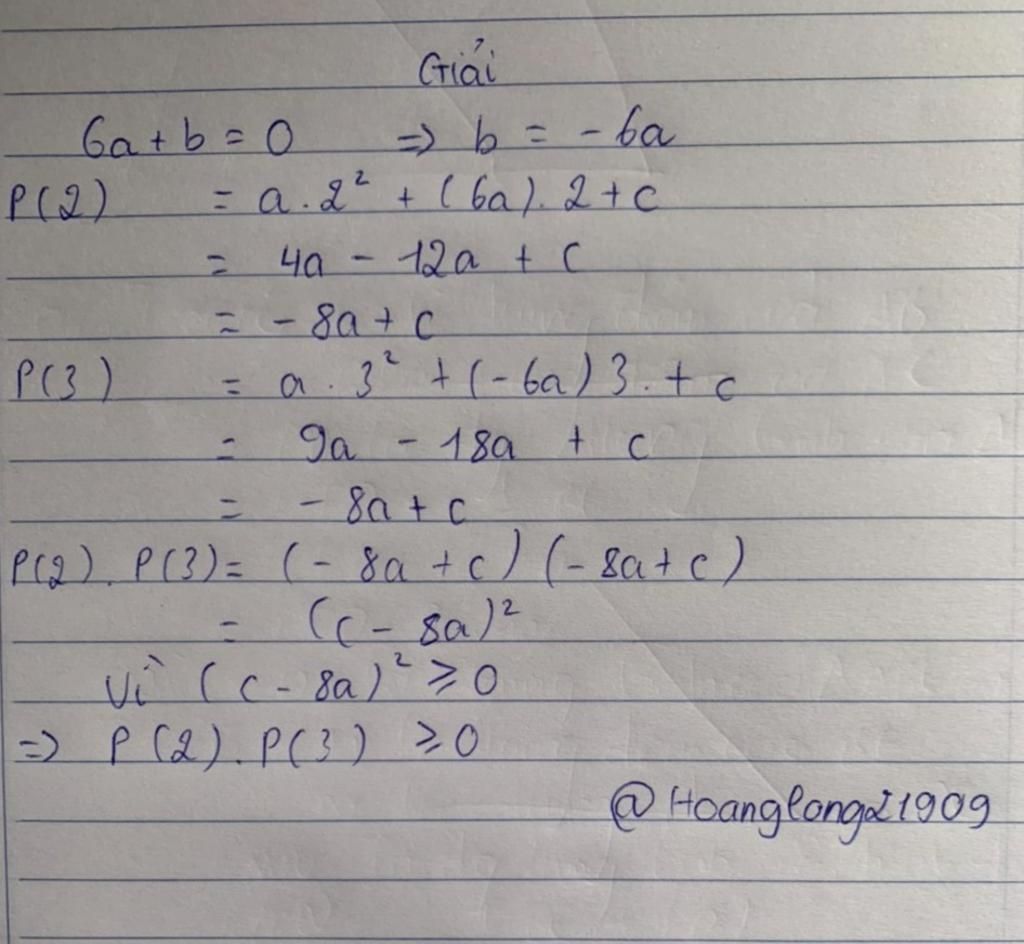 Giải
6a + b = 0 => b = - 6a
P(2) = a . 2² + (6a). 2 + c
= 4a - 12a + c
= - 8a + c
P(3) = a . 3² + (- 6a) 3 . + c
= 9a - 18a + c
= - 8a + c
P(2). P(3) = (- 8a + c) (- 8a + c)
= (c - 8a)²
Vì (c - 8a)² ⩾ 0
=> P(2). P(3) ⩾ 0
@Hoanglong21909